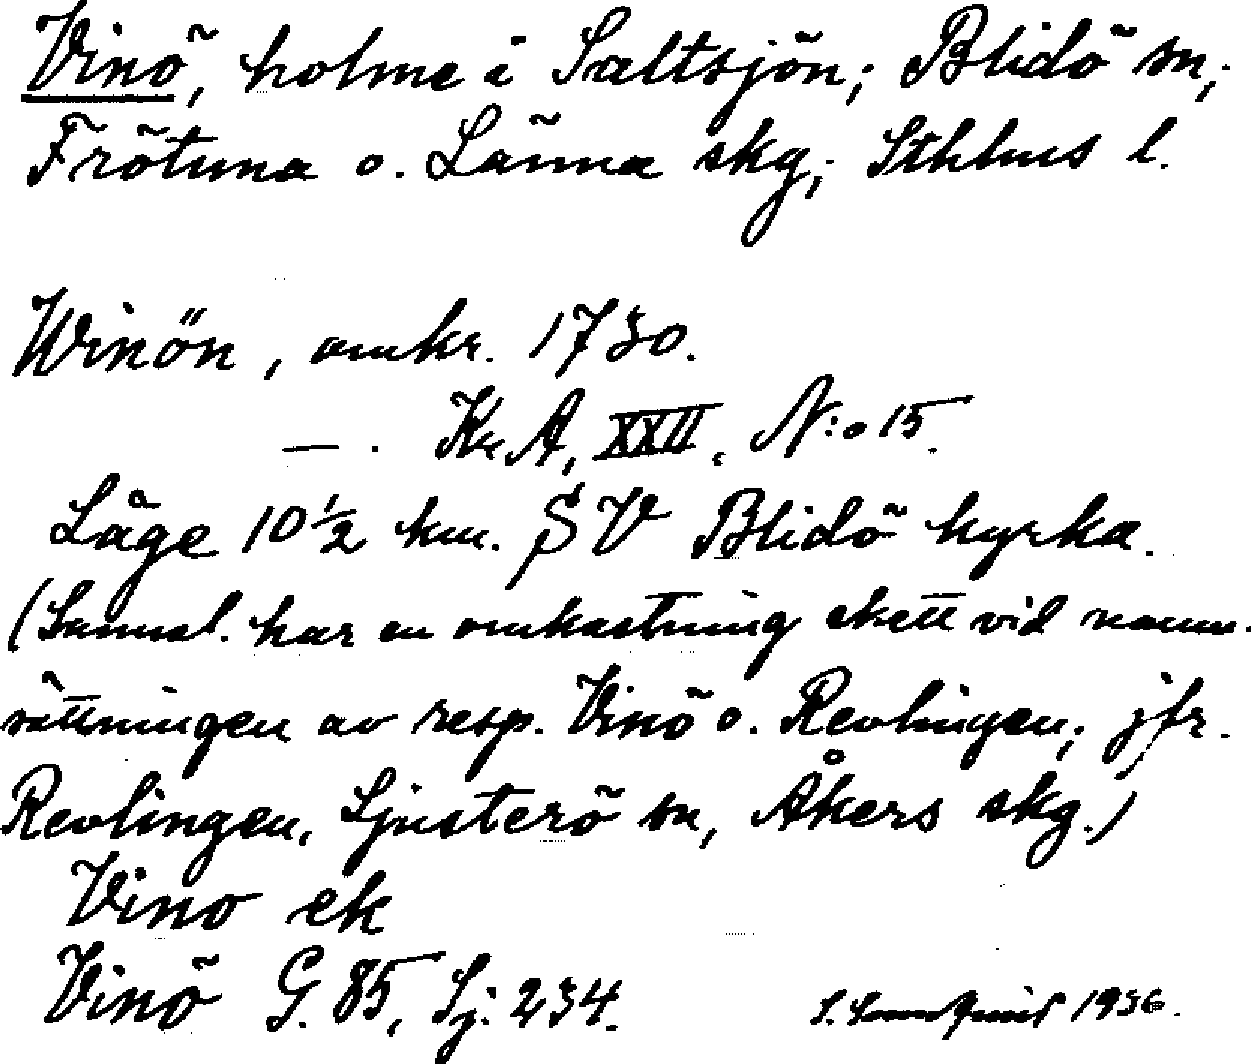 Vinö, holme i Saltsjön; Blidö sn,
Frötuna o. Länna skg, Sthlms l.
Winön, omkr. 1730.
— . Kr.A, XXII, N:o 15.
Läge 10 1/2 km. SV Blidö kyrka.
(Sannol. har en omkastning skett vid namn-
sättningen av resp. Vinö o. Revlingen; jfr.
Revlingen, Ljusterö sn, Åkers skg.)
Vinö ek
Vinö G. 85, Sj: 234.
1936.